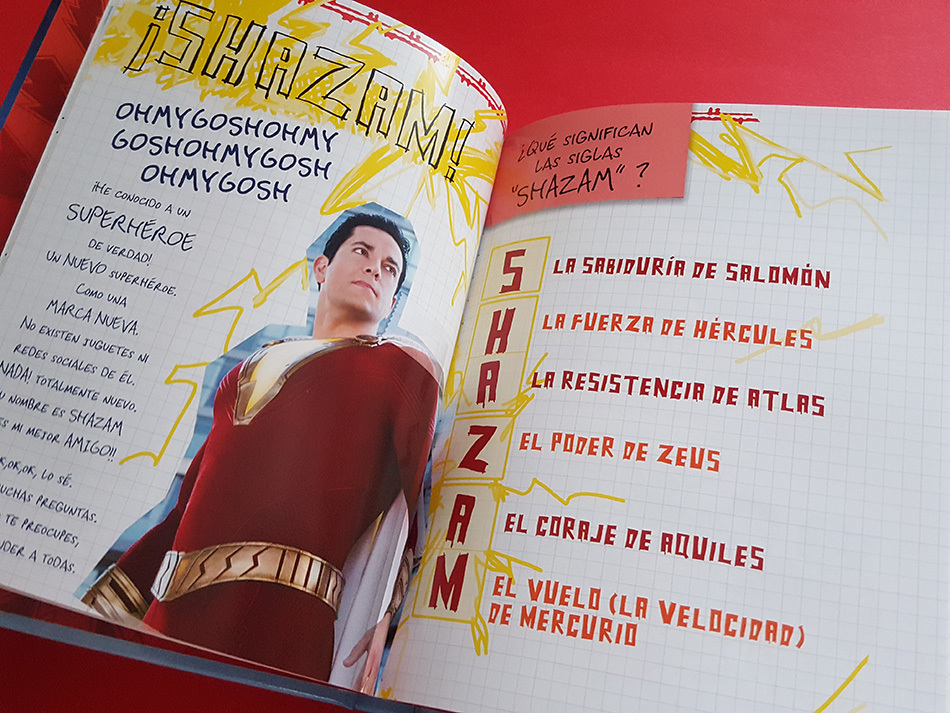 ¡SHAZAM!
OHMYGOSHOHMY
GOSHOHMYGOSH
OHMYGOSH
¡HE CONOCIDO A UN
SUPERHÉROE
DE VERDAD!
UN NUEVO SUPERHÉROE.
COMO UNA
MARCA NUEVA.
NO EXISTEN JUGUETES NI
REDES SOCIALES DE ÉL.
NADA! TOTALMENTE NUEVO.
NOMBRE ES SHAZAM
MI MEJOR AMIGO!!
OK, OK, LO SÉ.
PREGUNTAS.
TE PREOCUPES,
A TODAS.
¿QUÉ SIGNIFICAN
LAS SIGLAS
"SHAZAM" ?
S LA SABIDURÍA DE SALOMÓN
H LA FUERZA DE HÉRCULES
A LA RESISTENCIA DE ATLAS
Z EL PODER DE ZEUS
A EL CORAJE DE AQUILES
M EL VUELO (LA VELOCIDAD)
DE MERCURIO